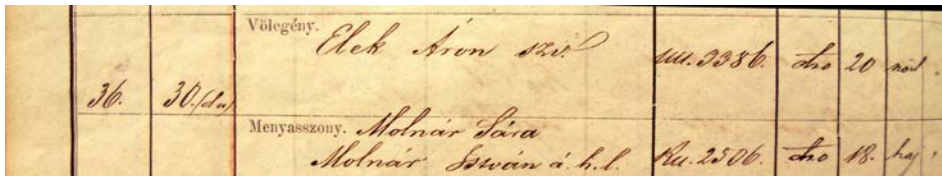 Völegény.
Elek Áron szül.
uu. 3386. dto 20 nőtl
36. 30. (dto)
Menyasszony. Molnár Sára
Molnár István á. h. l. Ku. 2506. dto 18. haj